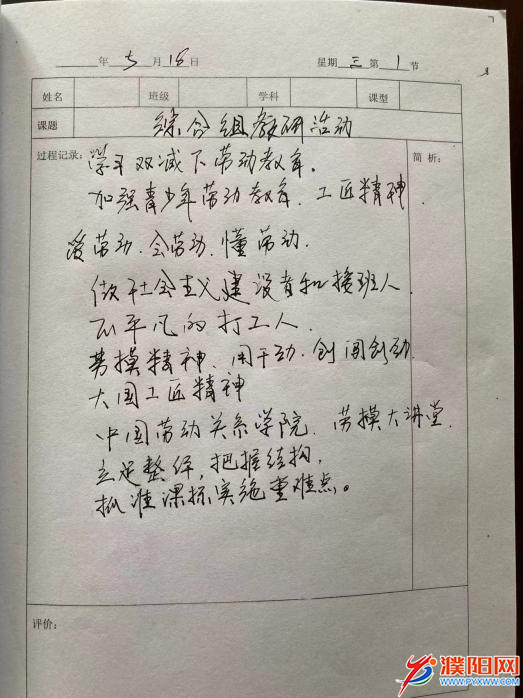 年 5 月 18 日 星期 三 第 1 节
姓名 班级 学科 课型
课题 综合组教研活动
过程记录: 简 析:
学习双减下劳动教育.
加强青少年劳动教育. 工匠精神.
爱劳动. 会劳动. 懂劳动.
做社会主义建设者和接班人.
平凡的打工人.
劳模精神. 创
大国工匠精神
中国劳动关系学院. 劳模大讲堂.
立足整体, 把握结构,
抓准课标实施重难点。
评价:
濮阳网
WWW.PYXWW.COM